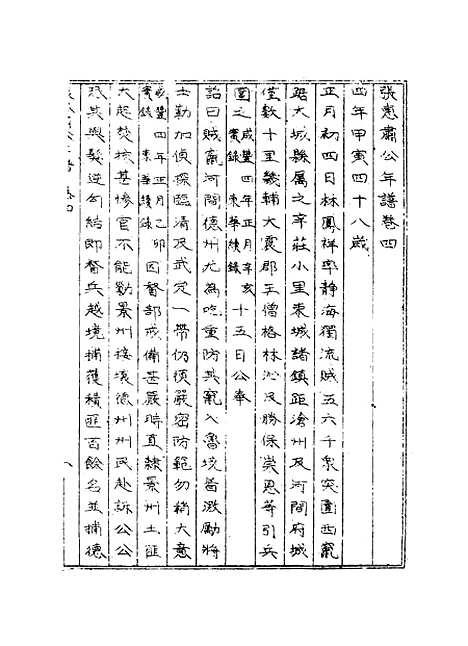 張惠肅公年譜卷四
四年甲寅四十八歲
正月初四日林鳳祥率靜海獨流賊五六千衆突圍西竄
踞大城縣屬之辛莊小里東城諸鎮距滄州及河間府城
僅數十里畿輔大震郡王僧格林沁及勝保崇恩等引兵
圍之咸豐四年正月辛亥實錄東華續錄十五日公奉
詔曰賊竄河間德州尤為吃重防其竄入魯境着激勵將
士勤加偵探臨清及武定一帶仍須嚴密防範勿稍大意
咸豐四年正月乙卯實錄東華續錄因督部戒備甚嚴時直隸景州土匪
大起焚掠甚慘官不能勦景州接壤德州州民赴訴公公
恐其與髮逆勾結即督兵越境捕獲積匪百餘名並捕德